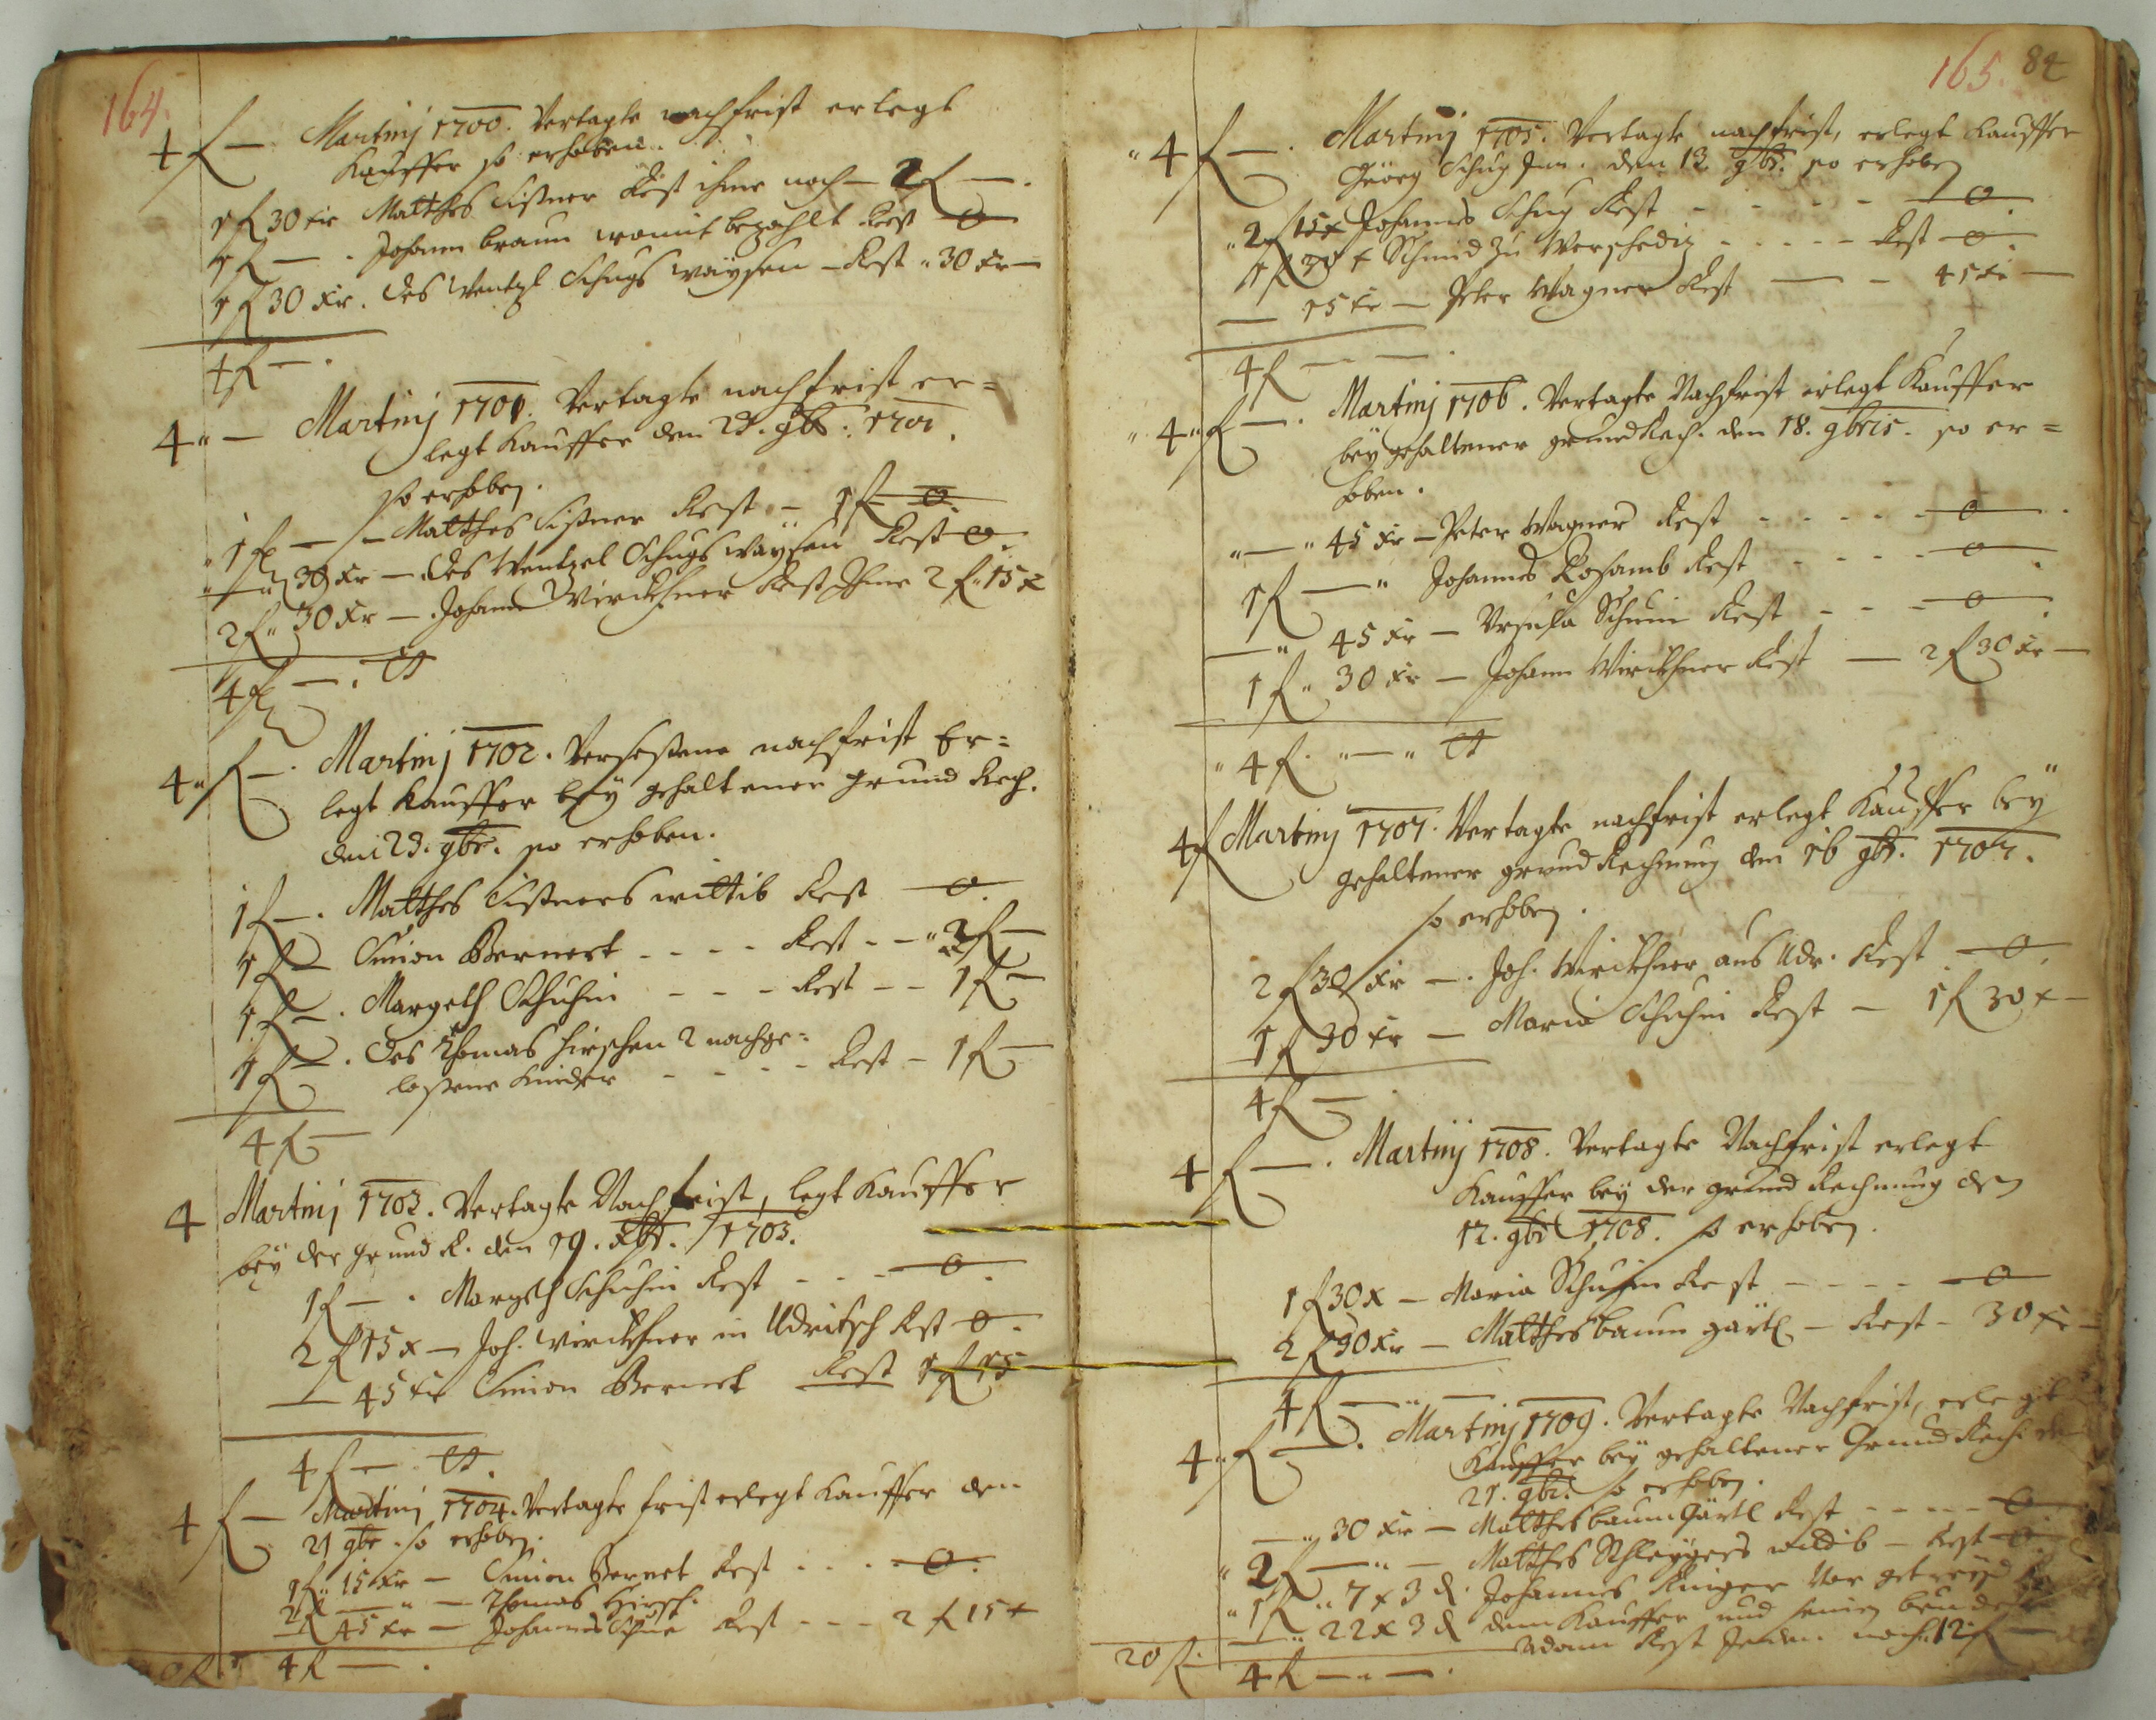 164.
4 f — Martinj 1700. Vertagte nachfrist erlegt
Kauffer so erhoben.
1 f 30 xr Matthes Lißner Rest ihme noch — 2 f —.
1 f — . Johann braun womit bezahlt Rest 0
1 f 30 xr. des Wentzl Schugs waysen — Rest " 30 xr —
4 f — .
4 " — Martinj 1701. Vertagte nachfrist er=
legt Kauffer den 23. gbr. 1701.
so erhoben.
1 f — — Matthes Lißner Rest — 1 f 0.
30 xr — des Wentzel Schugs waysen Rest 0.
2 f " 30 xr — Johann Wirckhner Rest Ihme 2 f " 15 x
4 f — .
4 " f — . Martinj 1702. Verseßene nachfrist Er=
legt Kauffer bey gehaltener grund Rech.
den 23. gbr. so erhoben.
1 f — . Matthes Lißners wittib Rest 0.
1 f — Simon Bernert - - - - Rest - - " 2 f —
1 f — . Margeth Schuhin - - - Rest - - 1 f —
1 f — . des Thomas Hirschen 2 nachge=
laßene Kinder - - - - Rest — 1 f —
4 f —
4 Martinj 1703. Vertagte Nachfrist, legt Kauffer
bey der grund R. den 19. xbr. 1703.
1 f — . Margeth Schuhin Rest - - - 0.
2 f 15 x — Joh. Wirckhner in Udritsch Rst 0.
— 45 xr Simon Bernet Rest 1 f 15
4 f —
4 f — Martinj 1704. Vertagte frist erlegt Kauffer den
21 gbr. so erhoben.
1 f " 15 xr — Simon Bernet Rest - - - 0.
2 f — " — Thomas Hirsch.
45 xr — Johannes Schue Rest - - - 2 f 15 x
4 f — .
165. 84
" 4 f — . Martinj 1705. Vertagte nachfrist, erlegt Kauffer
Georg Schug Jun. den 13. gbr. so erhoben
" 2 f 15 x Johannes Schug Rest - - - - 0.
1 f 30 x Schmid zu Werschediz - - - - - Rest 0.
— 15 xr — Peter Wagner Rest — — 45 xr —
4 f — — .
" 4 " f — . Martinj 1706. Vertagte Nachfrist erlegt Kauffer
bey gehaltener grund Rech. den 18. gbris. so er=
hoben.
" — " 45 xr — Peter Wagner Rest - - - - - 0.
1 f — " Johannes Rosamb Rest - - - - 0.
— " 45 xr — Ursula Schuin Rest - - - 0.
1 f " 30 xr — Johann Wirckhner Rest — 2 f 30 xr —
" 4 f. " — "
4 f Martinj 1707. Vertagte nachfrist erlegt Kauffer bey
gehaltener grund Rechnung den 16 gbr. 1707.
so erhoben.
2 f 30 xr — . Joh. Wirckhner aus Udr. Rest 0.
1 f 30 xr — Maria Schuhin Rest — 1 f 30 x —
4 f — .
4 f — . Martinj 1708. Vertagte Nachfrist erlegt
Kauffer bey der grund Rechnung den
12. gbr 1708. so erhoben.
1 f 30 x — Maria Schuhin Rest - - - - 0
2 f 30 xr — Matthes baumgärtl — Rest — 30 xr —
4 f — " —
4 " f — . Martinj 1709. Vertagte Nachfrist, erlegt
Kauffer bey gehaltener Grund Rech. den
21. gbr. so erhoben.
— " 30 xr — Matthes baumgärtl Rest - - - - 0
" 2 f — " — Matthes Schleyers wittib — Rest 0.
" 1 f " 7 x 3 d. Johannes Kniger vor getreyd
— " 22 x 3 d dem Kauffer und seinen bruder
Adam Rest Jeden noch 12 f —
20 f. 4 f — " — .